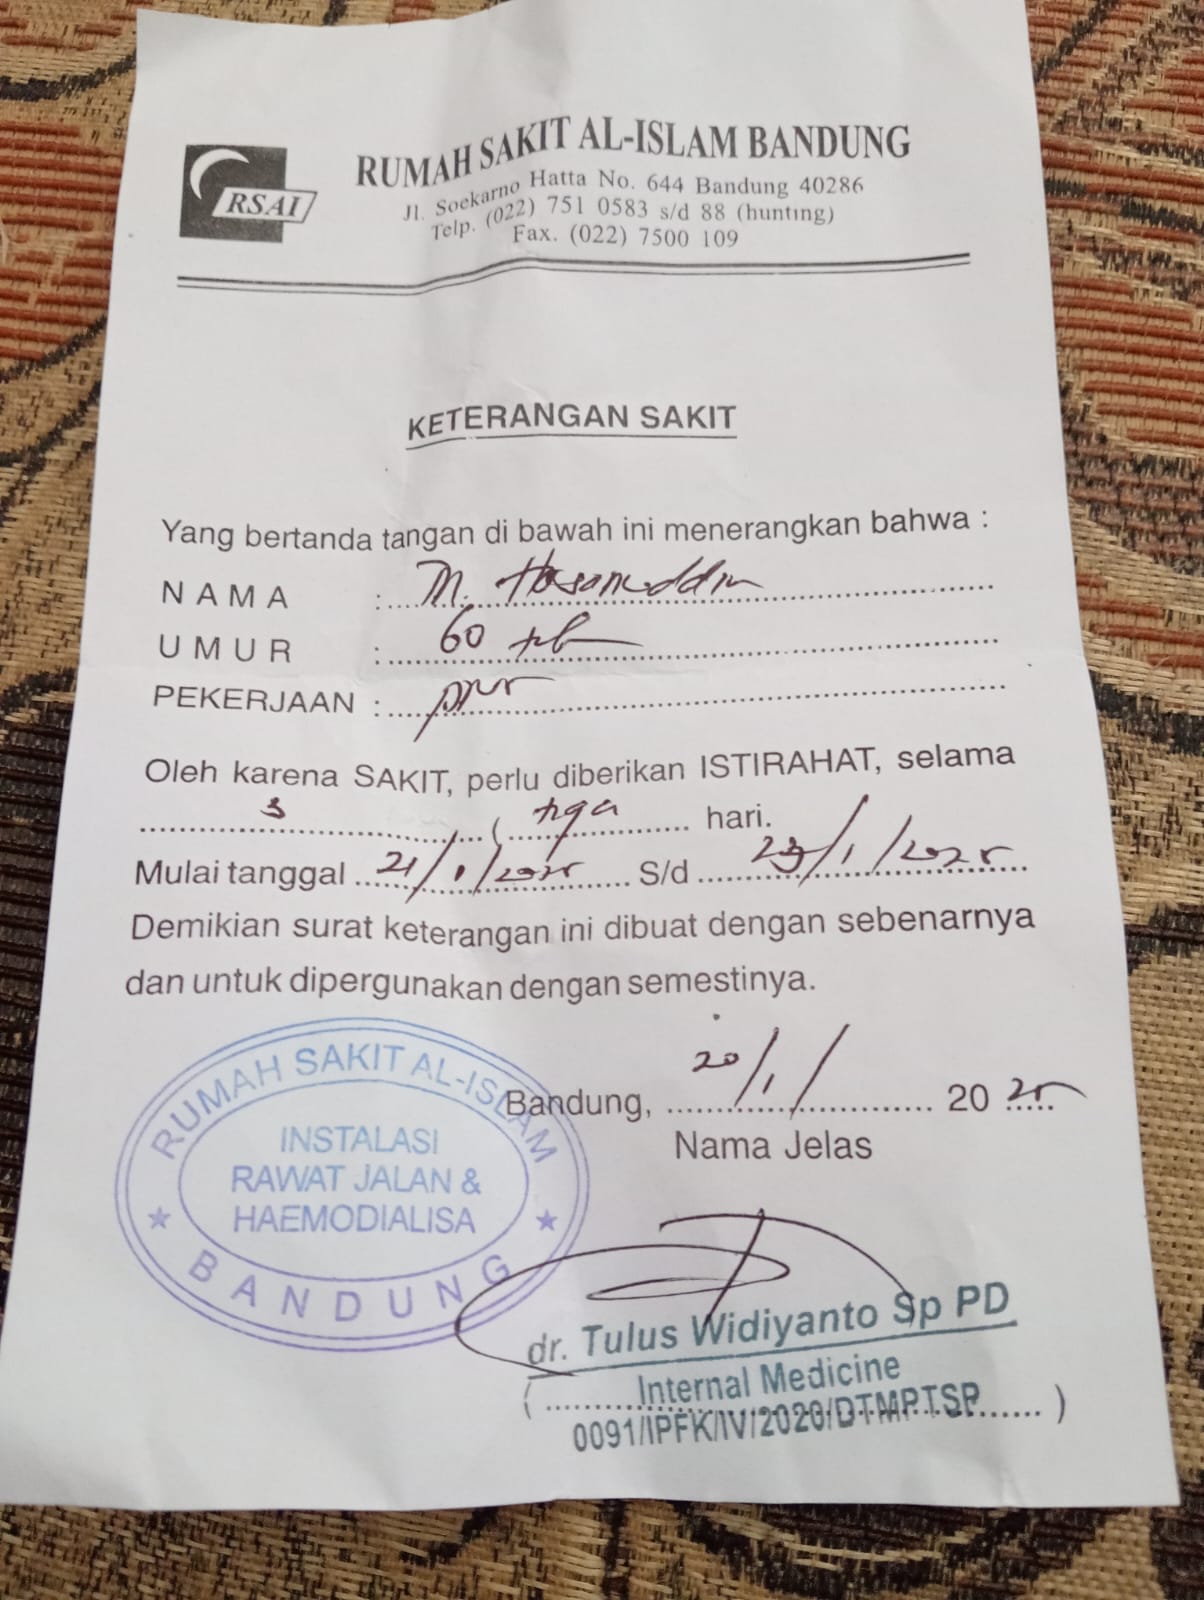 RSAI
RUMAH SAKIT AL-ISLAM BANDUNG
Jl. Soekarno Hatta No. 644 Bandung 40286
Telp. (022) 751 0583 s/d 88 (hunting)
Fax. (022) 7500 109
KETERANGAN SAKIT
Yang bertanda tangan di bawah ini menerangkan bahwa :
NAMA : M. Hasanuddin
UMUR : 60
PEKERJAAN :
Oleh karena SAKIT, perlu diberikan ISTIRAHAT, selama
3 ( tiga hari.
Mulai tanggal 21/1/2025 S/d 23/1/2025
Demikian surat keterangan ini dibuat dengan sebenarnya
dan untuk dipergunakan dengan semestinya.
Bandung, 20/1/ 2025
Nama Jelas
RUMAH SAKIT AL-ISLAM
INSTALASI
RAWAT JALAN &
HAEMODIALISA
BANDUNG
dr. Tulus Widiyanto Sp PD
Internal Medicine
0091/IPFK/IV/2020/DTMPTSP